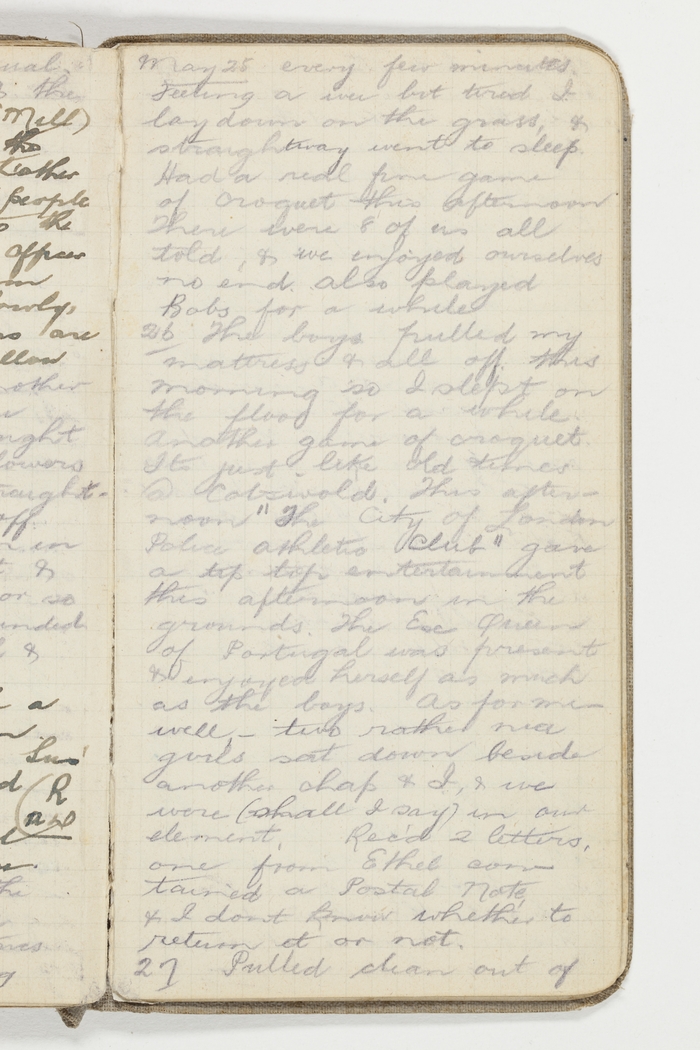 ual,
the
Mill)
the
Leather
people
the
Officer
owly,
are
ellow
nother
ught
lowers
raught-
off.
in
&
or so
unded
&
a
Lus'
d (R
the
May 25 every few minutes.
Feeling a wee bit tired I
lay down on the grass, &
straightway went to sleep.
Had a real fine game
of croquet this afternoon
There were 8 of us all
told, & we enjoyed ourselves
no end. also played
Bobs for a while
26 The boys pulled my
mattress & all off this
morning so I slept on
the floor for a while.
Another game of croquet.
Its just like old times
@ Cotswolds. This after-
noon "The City of London
Police athletic Club" gave
a tip top entertainment
this afternoon in the
grounds. The Exe Queen
of Portugal was present
& enjoyed herself as much
as the boys. As for me—
well, - two rather nice
girls sat down beside
another chap & I, & we
were (shall I say) in our
element. Rec'd 2 letters,
one from Ethel con-
tained a Postal Note,
& I dont know whether to
return it or not.
27 Pulled clean out of